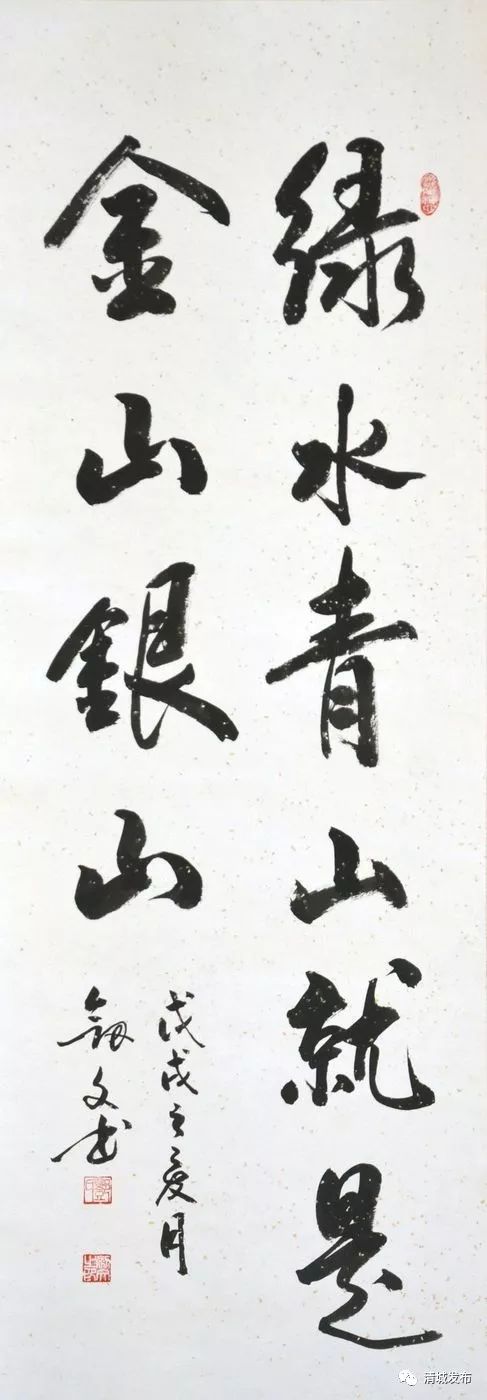 绿水青山就是
金山銀山
戊戌之夏月
剑文书
清城发布